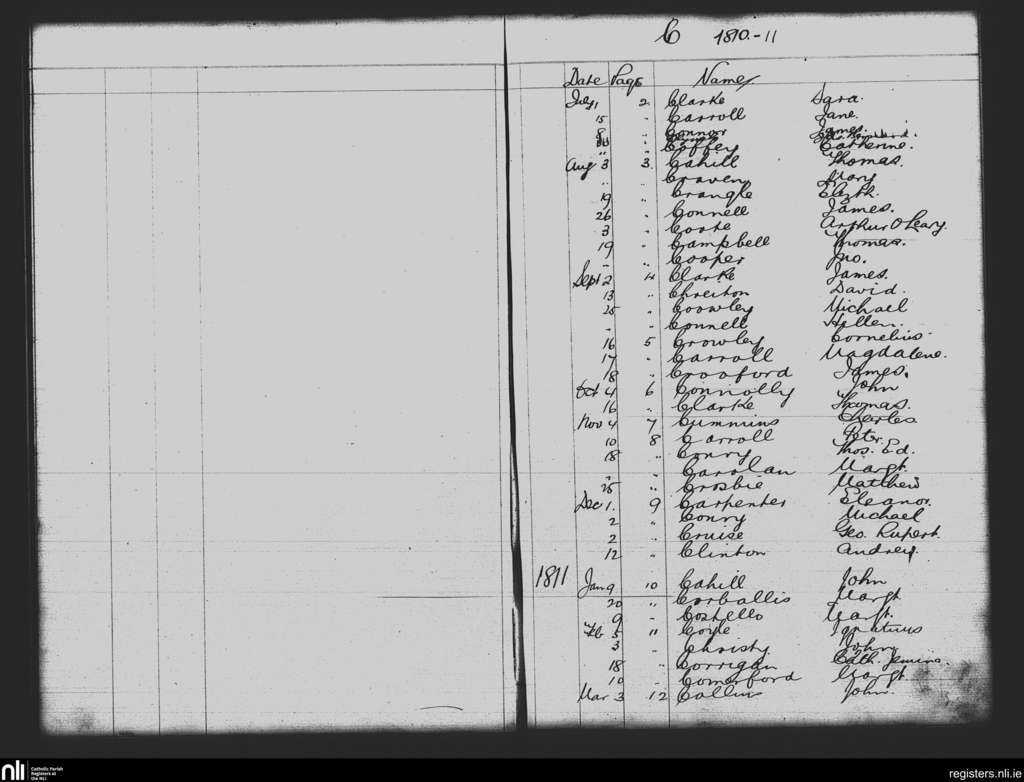 C 1810.-11
Date Page Names
July 1 2 Clarke Sara.
15 " Carroll Jane.
8 " Connor James.
" " Coffey Catherine.
Aug 3 3 Cahill Thomas.
" " Craven Mary
19 " Crangle Elizth.
26 " Connell James.
3 " Coote Arthur O'Leary.
19 " Campbell Thomas.
" " Cooper Jno.
Sept 2 4 Clarke James.
13 " Chreiton David.
25 " Coowley Michael
" " Connell Hellen.
16 5 Crowley Cornelius
17 " Carroll Magdalene.
18 " Crooford James.
Oct 4 6 Connolly John
16 " Clarke Thomas.
Nov 4 7 Cummins Charles
10 8 Carroll Peter.
18 " Conry Thos. Ed.
" " Carolan Margt.
25 " Crosbie Matthew
Dec 1. 9 Carpenter Eleanor.
2 " Conry Michael
2 " Cruise Geo. Rupert.
12 " Clinton Audrey.
1811 Jan 9 10 Cahill John
20 " Corballis Margt
9 " Costello Margt.
Feb 5 11 Coyle Ignatius
3 " Christy John
18 " Corrigan Cath.
10 " Comerford Margt
Mar 3 12 Collins John.
nli Catholic Parish
Registers at
the NLI
registers.nli.ie